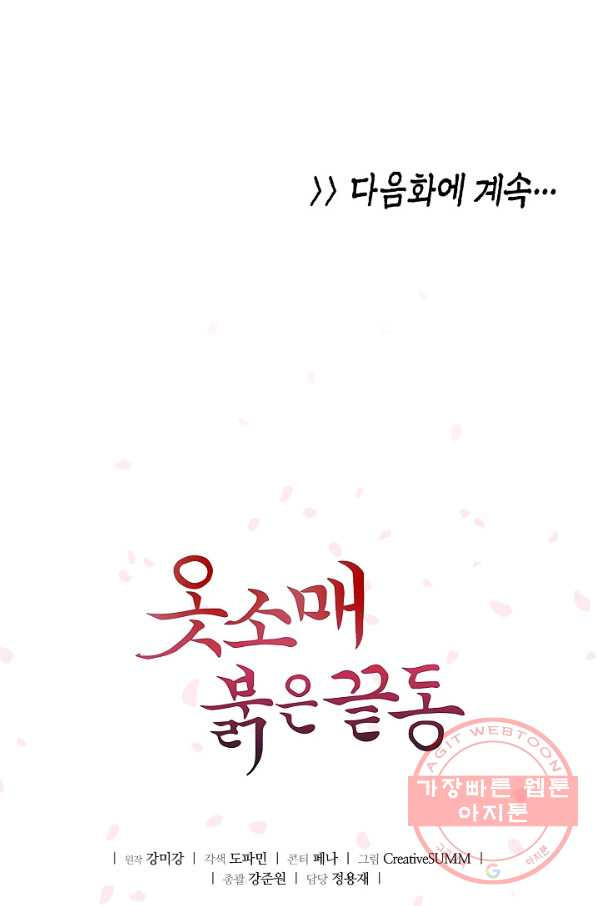 >> 다음화에 계속...
옷소매
붉은 끝동
AGIT WEBTOON
가장빠른 웹툰
아지툰
| 원작 강미강 | 각색 도파민 | 콘티 페나 | 그림 CreativeSUMM |
| 총괄 강준원 | 담당 정용재 |